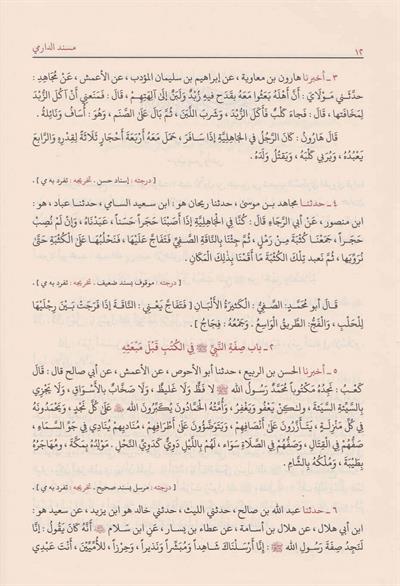 ١٢ مسند الدارمي
٣ - أخبرنا هارون بن معاوية، عن إبراهيم بن سليمان المؤدب، عن الأعمش، عَنْ مُجَاهِدٍ:
حدثَني مَوْلَايَ: أَنَّ أَهْلَهُ بَعَثُوا مَعَهُ بِقَدَحٍ فيهِ زُبْدٌ وَلَبَنٌ إِلَى آلِهَتِهِمْ، قَالَ: فَمَنَعَنِي أَنْ آكُلَ الزُّبْدَ
لِمَخَافَتِها، قَالَ: فجَاءَ كَلْبٌ فَأَكَلَ الزُّبْدَ، وَشَرِبَ اللَّبَنَ، ثُمَّ بَالَ عَلَى الصَّنَمِ، وَهُوَ: أُسَافُ وَنَائِلَةُ.
قَالَ هَارُونُ: كَانَ الرَّجُلُ في الجَاهِلِيَّةِ إِذَا سَافَرَ، حَمَلَ مَعَهُ أَرْبَعَةَ أَحْجَارٍ ثَلاَثَةً لِقِدْرِهِ وَالرَّابعَ
يَعْبُدُهُ، وَيُرَبِّي كَلْبَهُ، وَيَقتُلُ وَلَدَهُ.
[درجته: إسناد حسن. تخريجه: تفرد به مي].
٤ - حدثنا مجاهد بن موسىٰ، حدثنا ريحان هو: ابن سعيد السامي، حدثنا عباد، هو:
ابن منصور، عَنْ أَبي الرَّجَاءِ قَالَ: كُنَّا في الجَاهِلِيَّةِ إِذَا أَصَبْنَا حَجَراً حَسَناً، عَبَدْنَاهُ، وَإِنْ لَمْ نُصِبْ
حَجَراً، جَمَعْنَا كُثْبَةً مِنْ رَمْلٍ، ثُمَّ جِئْنَا بِالنَّاقَةِ الصَّفِيِّ فَتَفَاجُّ عَلَيْهَا، فَنَحْلُبُهَا عَلَى الْكُثْبَةِ حَتَّىٰ
نُرَوِّيَهَا، ثُمَّ نَعبد تِلكَ الْكُثبَةَ مَا أَقمْنَا بِذَلِكَ المَكَانِ.
[درجته: موقوف بسند ضعيف. تخريجه: تفرد به مي].
قَالَ أبو مُحمَّدٍ: الصَّفِيُّ: الْكَثيرَةُ الأَلْبَانِ [فَتَفَاجُّ يَعْني: النَّاقةَ إِذَا فَرَّجَتْ بَيْنَ رِجْلَيْهَا
لِلْحَلْبِ، وَالْفَجُّ: الطريقُ الْوَاسِعُ. وَجَمْعُهُ: فِجَاجٌ].
٢- باب صِفَةِ النَّبيِّ ﷺ فِي الْكُتُبِ قَبْلَ مَبْعَثِهِ
٥ - أخبرنا الحسن بن الربيع، حدثنا أبو الأحوص، عن الأعمش، عن أبي صالح قال: قَالَ
كَعْبٌ: نَجِدُهُ مَكْتُوباً مُحَمَّدٌ رَسُولُ اللهِ ﷺ لاَ فَظٌّ وَلاَ غَلِيظٌ، وَلاَ صَخَّابٌ بِالأَسْوَاقِ، وَلاَ يَجْزِي
بِالسَّيِّئَةِ السَّيِّئَةَ، وَلَكِنْ يَعْفُو وَيَغْفِرُ، وَأُمَّتُهُ الحَمَّادُونَ يُكَبِّرُونَ اللهَ ﷻ عَلَى كُلِّ نَجْدٍ، وَيَحْمَدُونَهُ
فِي كُلِّ مَنْزِلَةٍ، يَتَأَزَّرُونَ عَلَى أَنْصَافِهِمْ، وَيَتَوَضَّؤُونَ عَلَى أَطْرَافِهِمْ، مُنَادِيهِمْ يُنَادِي في جَوِّ السَّمَاءِ،
صَفُّهُمْ في الْقِتَالِ، وَصَفُّهُمْ في الصَّلاَةِ سَوَاء، لَهُمْ بِاللَّيْلِ دَوِيٌّ كَدَوِيِّ النَّحْلِ. مَوْلِدُهُ بِمَكَّةَ، وَمُهَاجَرُهُ
بِطَيْبَةَ، وَمُلْكُهُ بِالشَّامِ.
[درجته: مرسل بسند صحيح. تخريجه: تفرد به مي].
٦ - حدثنا عبد الله بن صالح، حدثني الليث، حدثني خالد هو ابن يزيد، عن سعيد هو:
ابن أبي هلال، عن هلال بن أسامة، عن عطاء بن يسار، عَنِ ابْنِ سَلَامٍ ﷺ أَنَّهُ كَانَ يَقُولُ: إِنَّا
لَنَجِدُ صِفَةَ رَسُولِ اللهِ ﷺ: إِنَّا أَرْسَلْنَاكَ شَاهِداً وَمُبَشِّراً وَنَذِيراً، وَحِرْزاً، لِلأُمِّيِّينَ، أَنْتَ عَبْدِي